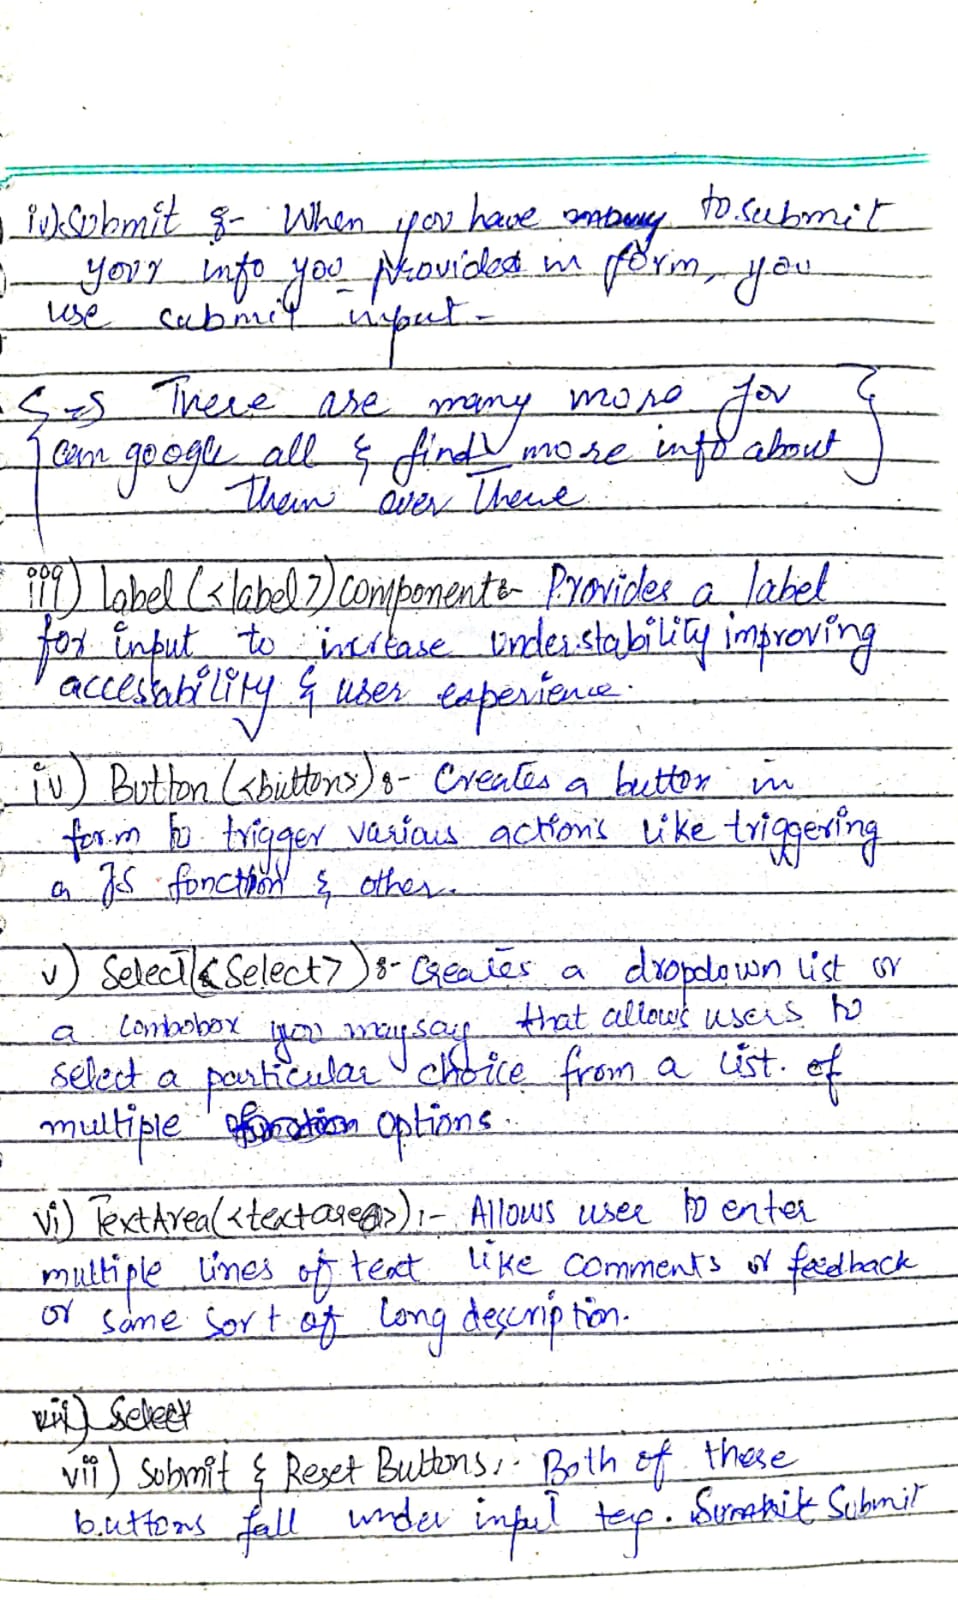 iv) Submit :- When you have to submit
your info you provided in form, you
use submit input -
There are many more you
can google all & find more info about
them over there
iii) Label (<label>) component :- Provides a label
for input to increase understability improving
accessability & user experience.
iv) Button (<buttons>) :- Creates a button in
form to trigger various actions like triggering
a JS function & other.
v) Select (<Select>) :- Creates a dropdown list or
a combobox you may say that allows users to
select a particular choice from a list of
multiple options.
vi) TextArea (<textarea>) :- Allows user to enter
multiple lines of text like comments or feedback
or some sort of long description.
vii) Select
vii) Submit & Reset Buttons :- Both of these
buttons fall under input tag. Submit